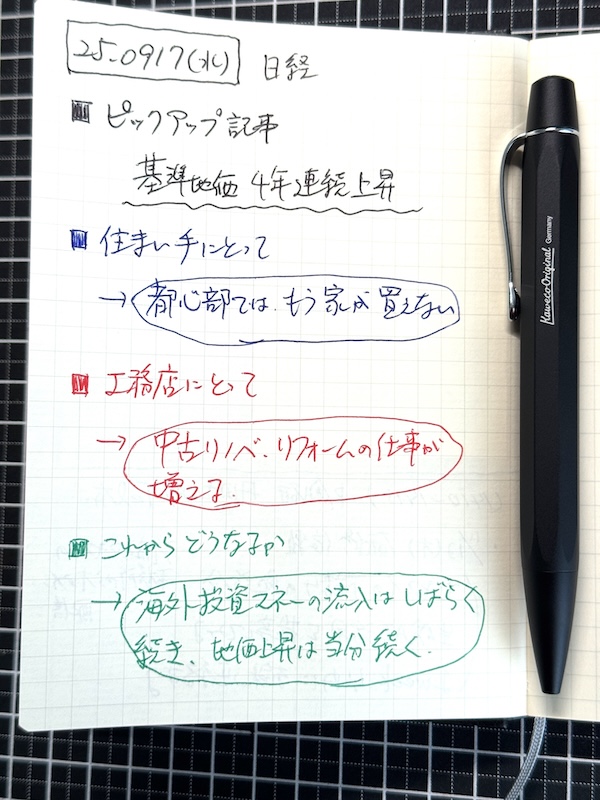 25.0917(水) 日経
ピックアップ記事
基準地価 4年連続上昇
住まい手にとって
→ 都心部では、もう家が買えない
工務店にとって
→ 中古リノベ、リフォームの仕事が
増える。
これからどうなるか
→ 海外投資マネーの流入はしばらく
続き、地価上昇は当分続く。
Kaweco-Original Germany